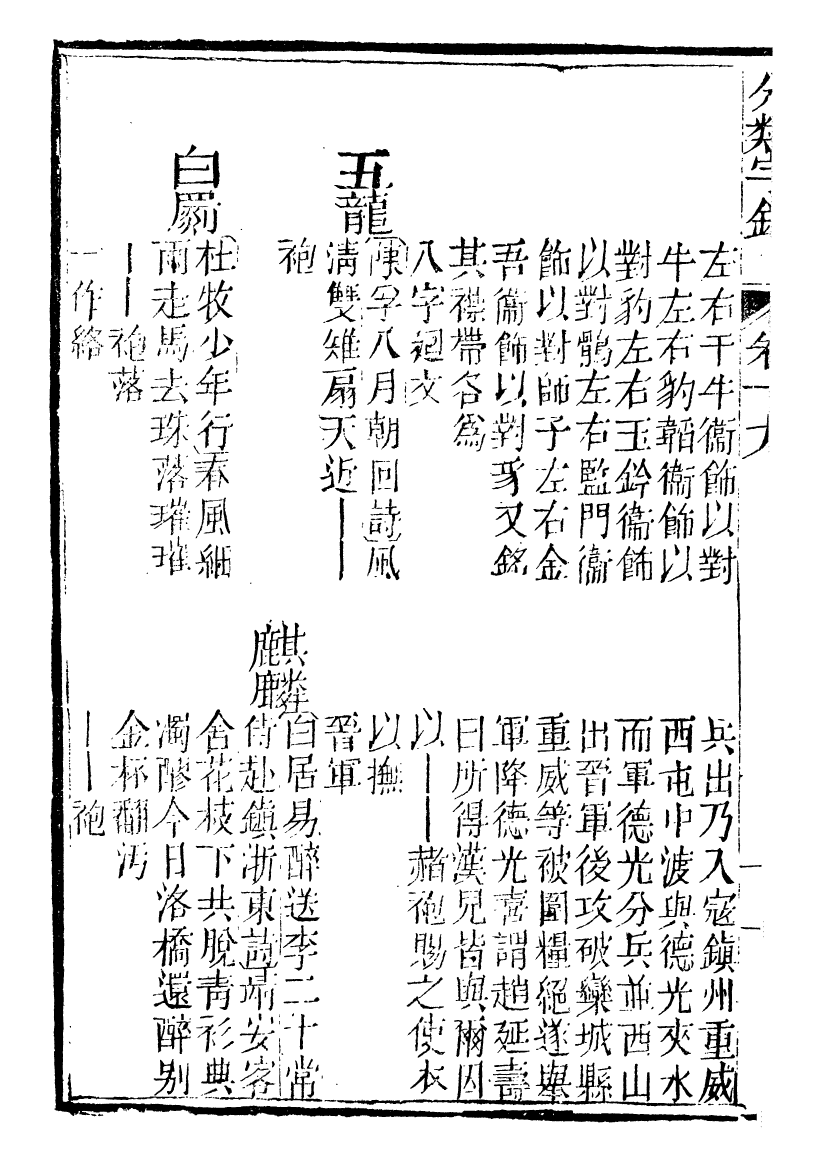 分類字錦 卷十九
左右千牛衞飾以對
牛左右豹韜衞飾以
對豹左右玉鈐衞飾
以對鶻左右監門衞
飾以對師子左右金
吾衞飾以對豸又銘
其襟帶各爲
八字迴文
五龍
陳孚八月朝回詩風
淸雙雉扇天近——
袍
白罽
杜牧少年行春風細
雨走馬去珠落璀璀
——袍落
一作絡
兵出乃入寇鎭州重威
西屯中渡與德光夾水
而軍德光分兵並西山
出晉軍後攻破欒城縣
重威等被圍糧絕遂舉
軍降德光喜謂趙延壽
曰所得漢兒皆與爾因
以——赭袍賜之使衣
以撫
晉軍
麒麟
白居易醉送李二十常
侍赴鎭浙東詩靖安客
舍花枝下共脫靑衫典
濁醪今日洛橋還醉別
金杯翻汚
——袍